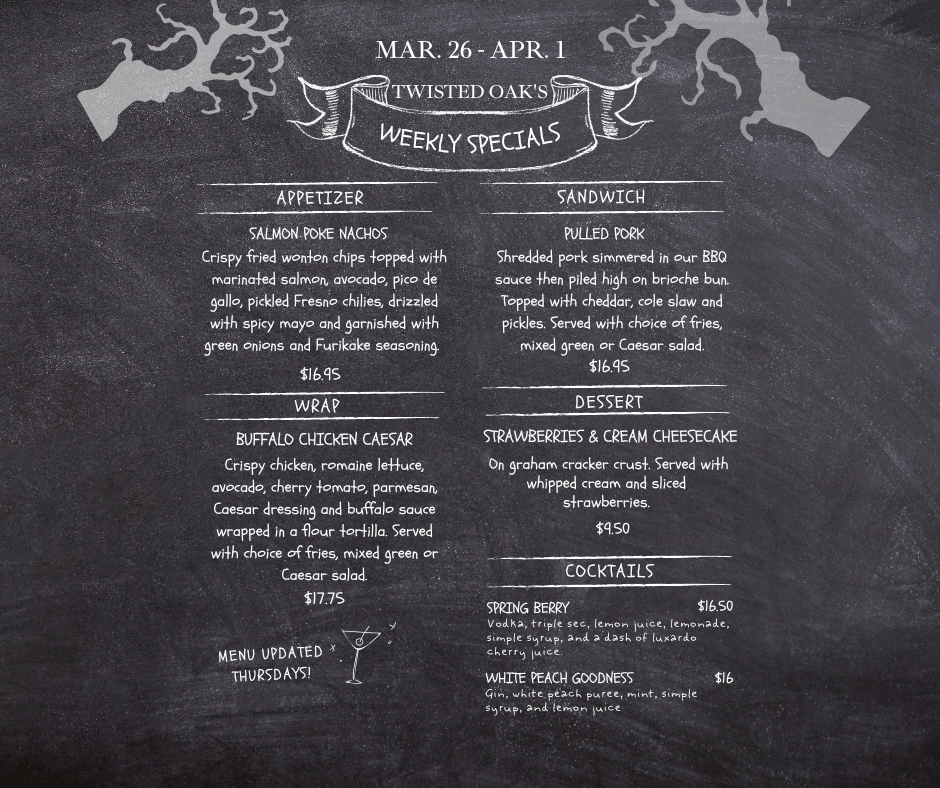 MAR. 26 - APR. 1
TWISTED OAK'S
WEEKLY SPECIALS
APPETIZER
SALMON POKE NACHOS
Crispy fried wonton chips topped with
marinated salmon, avocado, pico de
gallo, pickled Fresno chilies, drizzled
with spicy mayo and garnished with
green onions and Furikake seasoning.
$16.95
WRAP
BUFFALO CHICKEN CAESAR
Crispy chicken, romaine lettuce,
avocado, cherry tomato, parmesan,
Caesar dressing and buffalo sauce
wrapped in a flour tortilla. Served
with choice of fries, mixed green or
Caesar salad.
$17.75
MENU UPDATED
THURSDAYS!
SANDWICH
PULLED PORK
Shredded pork simmered in our BBQ
sauce then piled high on brioche bun.
Topped with cheddar, cole slaw and
pickles. Served with choice of fries,
mixed green or Caesar salad.
$16.95
DESSERT
STRAWBERRIES & CREAM CHEESECAKE
On graham cracker crust. Served with
whipped cream and sliced
strawberries.
$9.50
COCKTAILS
SPRING BERRY $16.50
Vodka, triple sec, lemon juice, lemonade,
simple syrup, and a dash of luxardo
cherry juice.
WHITE PEACH GOODNESS $16
Gin, white peach puree, mint, simple
syrup, and lemon juice